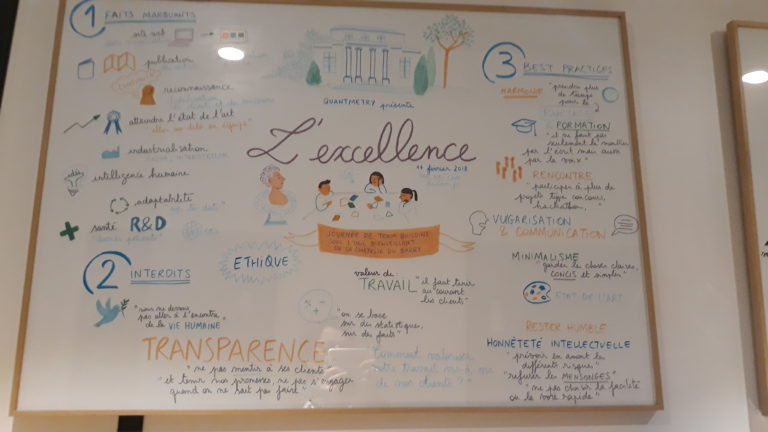 1 FAITS MARQUANTS
site web
publication
reconnaissance
atteindre l'état de l'art
industrialisation
intelligence humaine
adaptabilité
santé R&D
2 INTERDITS
"nous ne devons
pas aller à l'encontre
de la VIE HUMAINE
TRANSPARENCE
"ne pas mentir à ses clients
et tenir nos promesses, ne pas s'engager
quand on ne sait pas faire"
QUANTMETRY présente
L'excellence
14 février 2018
JOURNÉE DE TEAM BUILDING
SOUS L'OEIL BIENVEILLANT
DE LA COMTESSE DU BARRY
ETHIQUE
valeur de
TRAVAIL
"il faut tenir
au courant
les clients"
"on se base
sur des statistiques,
sur des faits"
Comment valoriser
notre travail vis-à-vis
de nos clients ?"
3 BEST PRACTICES
HARMONIE
"prendre plus
de temps
pour le
& FORMATION
"il ne faut pas
seulement le montrer
par l'écrit mais aussi
par la voix"
RENCONTRE
"participer à plus de
projets type concours,
hackathon,
VULGARISATION
& COMMUNICATION
MINIMALISME
garder les choses claires,
CONCIS et simples"
ETAT DE L'ART
RESTER HUMBLE
HONNÊTETÉ INTELLECTUELLE
"prévoir en amont les
différents risques"
"refuser les MENSONGES"
"ne pas choisir la facilité
ou la voie rapide"